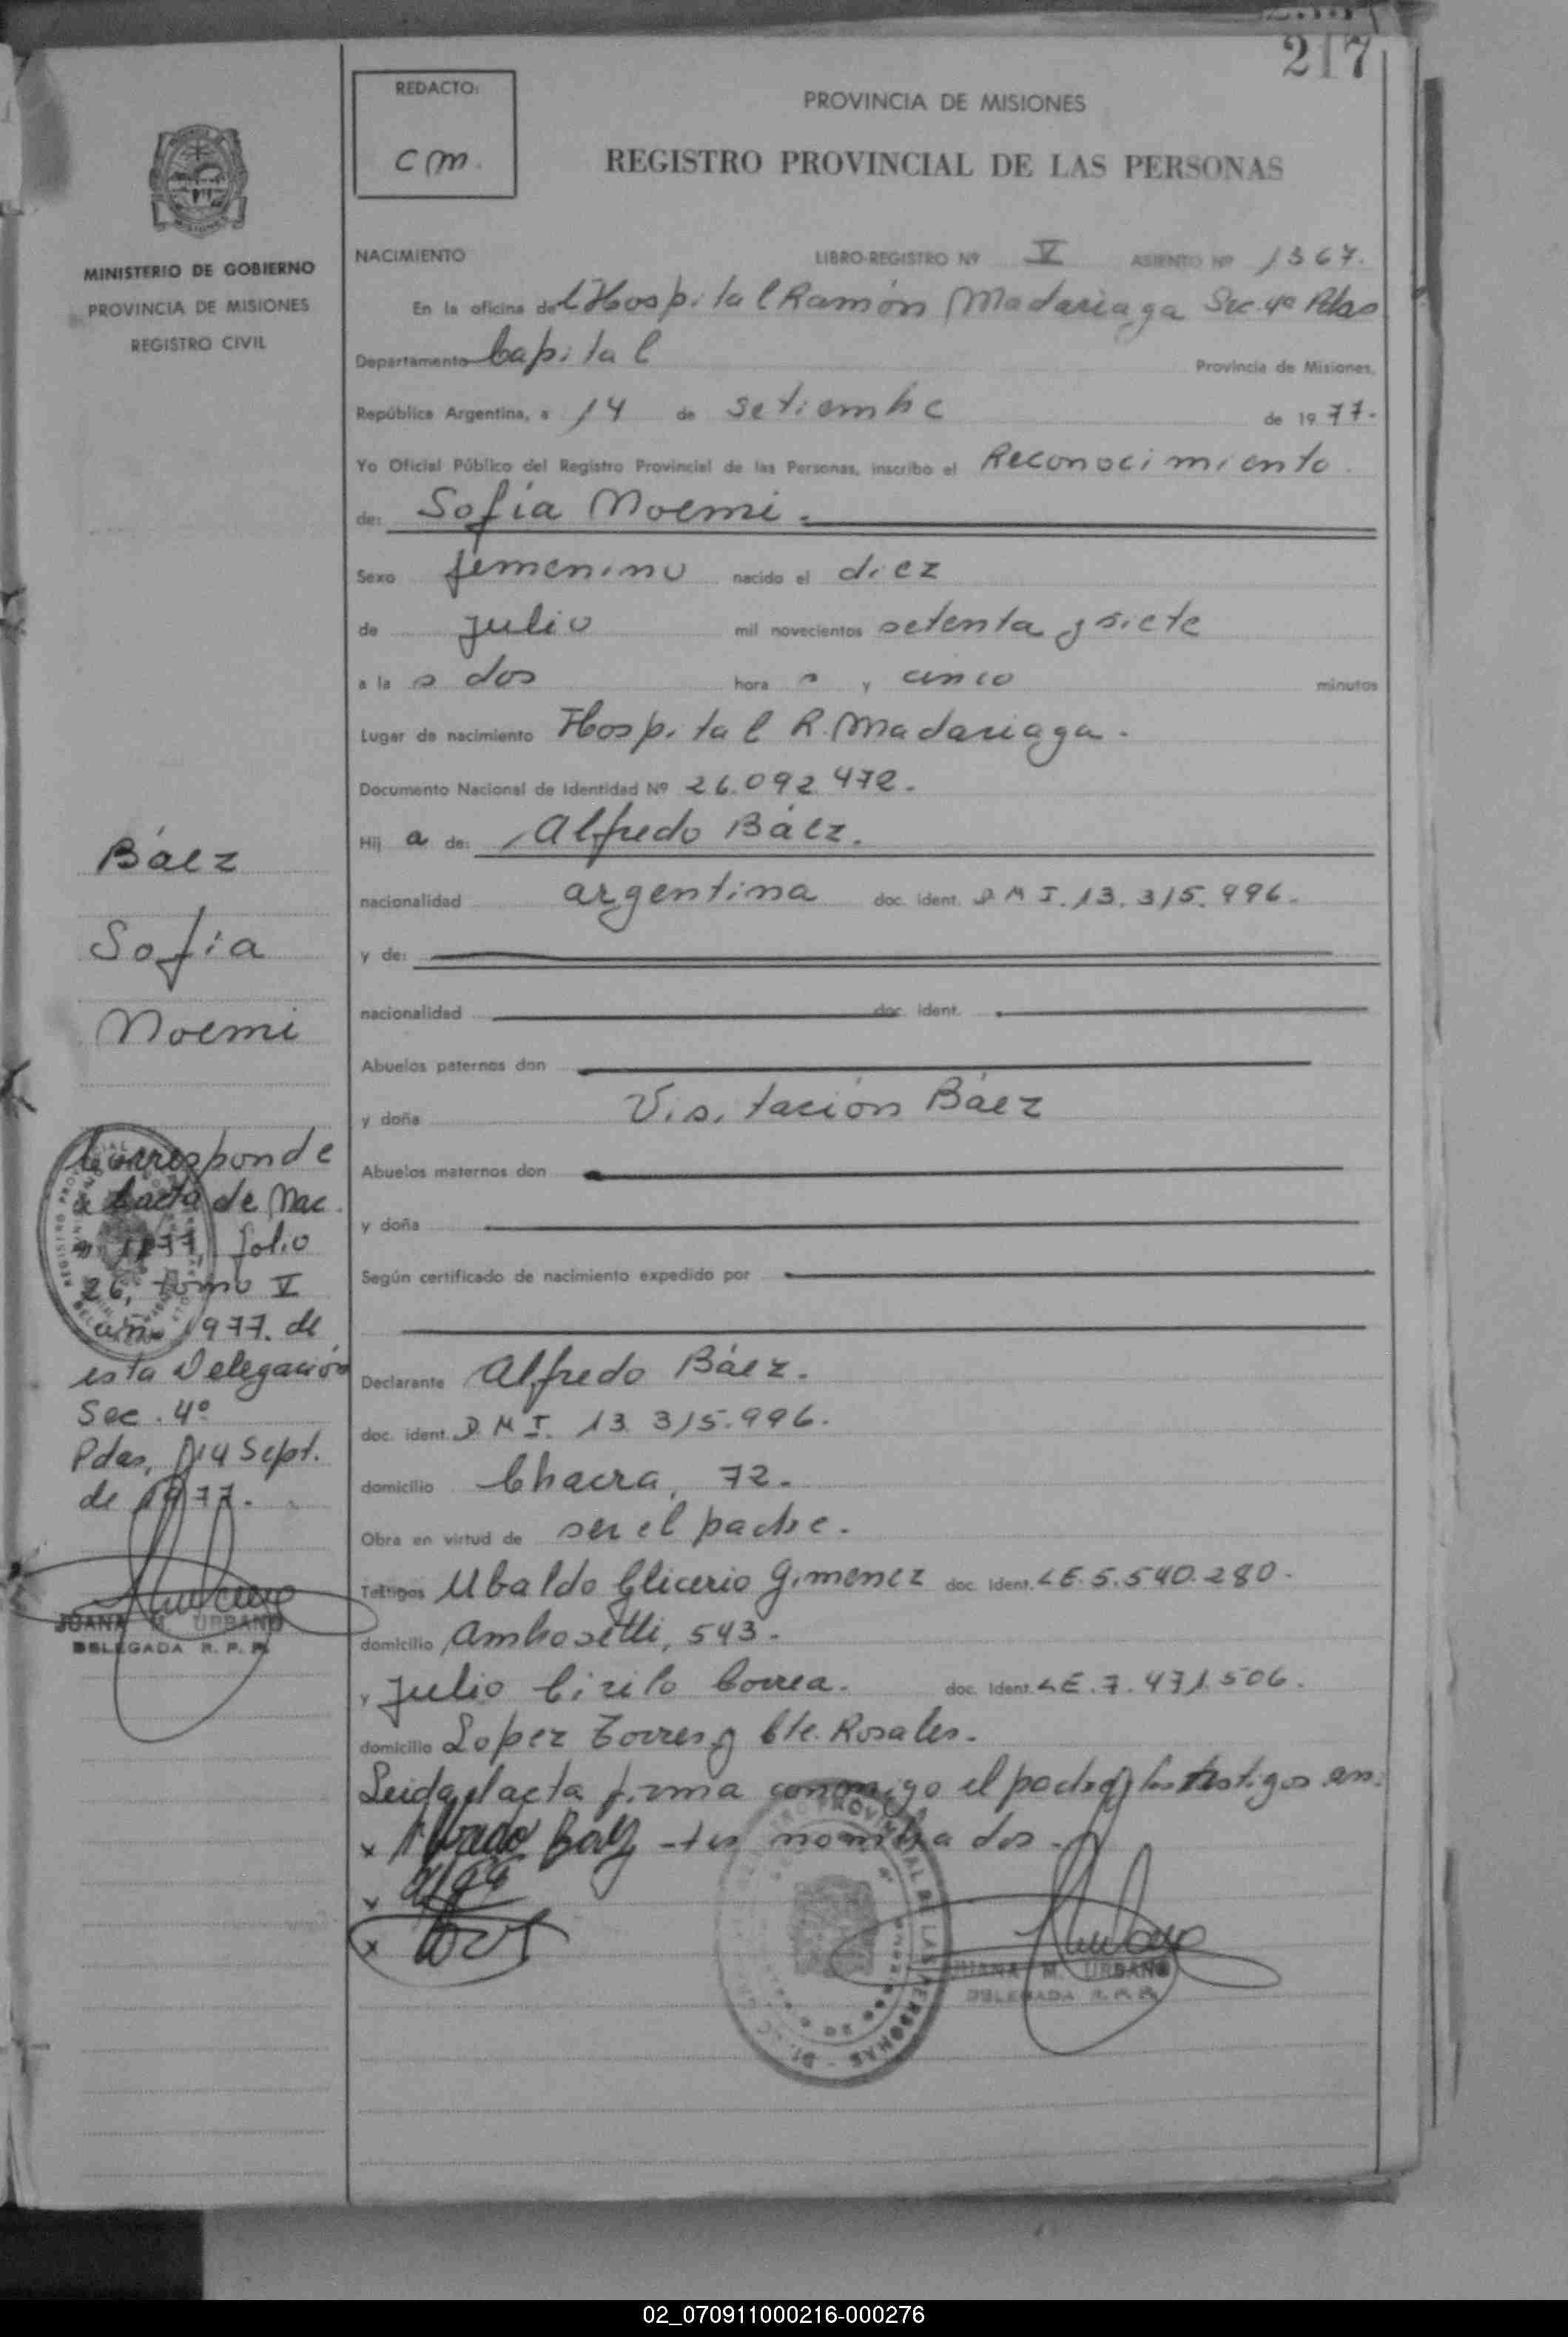 217
REDACTO:
CM.
PROVINCIA DE MISIONES
REGISTRO PROVINCIAL DE LAS PERSONAS
MINISTERIO DE GOBIERNO
PROVINCIA DE MISIONES
REGISTRO CIVIL
NACIMIENTO LIBRO-REGISTRO Nº V ASIENTO Nº 1367.
En la oficina del Hospital Ramón Madariaga Sec. 4ª Pdas
Departamento Capital Provincia de Misiones,
República Argentina, a 14 de setiembre de 1977.
Yo Oficial Público del Registro Provincial de las Personas, inscribo el Reconocimiento.
de: Sofía Noemi.
Sexo femenino nacido el diez
de julio mil novecientos setenta y siete
a la s dos hora s y cinco minutos
Lugar de nacimiento Hospital R. Madariaga.
Documento Nacional de Identidad Nº 26.092.472.
Hij a de: Alfredo Báez.
nacionalidad argentina doc. ident. D N I. 13.315.996.
y de:
nacionalidad doc. ident.
Abuelos paternos don
y doña Visitación Báez
Abuelos maternos don
y doña
Según certificado de nacimiento expedido por
Declarante Alfredo Báez.
doc. ident. D N I. 13.315.996.
domicilio Chacra, 72.
Obra en virtud de ser el padre.
Testigos Ubaldo Glicerio Gimenez doc. Ident. LE. 5.540.280.
domicilio Ambosetti, 543.
y Julio Cirilo Correa. doc. Ident. LE. 7.471.506.
domicilio Lopez Torres y Cte. Rosales.
Leida el acta firma conmigo el padre y los testigos an-
x Alfredo Baez -tes nombrados.
x
x
JUANA M. URBANO
DELEGADA R. P. P.
Báez
Sofia
Noemi
Corresponde
a acta de Nac.
1177 folio
26, tomo V
año 1977. de
esta Delegación
Sec. 4º
Pdas, 14 Sept.
de 1977.
JUANA M. URBANO
DELEGADA R. P. P.
02_070911000216-000276